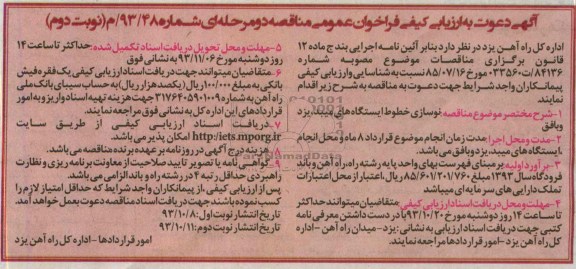 آگهی دعوت به ارزیابی کیفی فراخوان عمومی مناقصه دو مرحله ای شماره ۹۳/۴۸/م (نوبت دوم)
اداره کل راه آهن یزد در نظر دارد بنابر آئین نامه اجرایی بند ج ماده ۱۲
قانون برگزاری مناقصات موضوع مصوبه شماره
۸۴۱۳۶/ت۳۳۵۶۰ مورخ ۸۵/۰۷/۱۶ نسبت به شناسایی و ارزیابی کیفی
پیمانکاران واجد شرایط جهت دعوت به مناقصه به شرح زیر اقدام
نمایند.
۱-شرح مختصر موضوع مناقصه: نوسازی خطوط ایستگاه های میبد، یزد
و بافق
۲-مدت و محل اجرا: مدت زمان انجام موضوع قرارداد ۸ ماه و محل انجام
ایستگاه های میبد، یزد و بافق می باشد.
۳-برآورد اولیه: بر مبنای فهرست بهای واحد پایه رشته راه، راه آهن و باند
فرودگاه سال ۱۳۹۳ مبلغ ۸۵/۶۰۱/۲۰۱/۷۶۰ ریال، اعتبار از محل اعتبارات
تملک دارایی های سرمایه ای میباشد
۴-مهلت و محل دریافت اسناد ارزیابی کیفی: متقاضیان میتوانند حداکثر
تا ساعت ۱۴ روز دوشنبه مورخ ۹۳/۱۰/۲۰ با در دست داشتن معرفی نامه
کتبی جهت دریافت اسناد ارزیابی به نشانی: یزد-میدان راه آهن -اداره
کل راه آهن یزد -امور قراردادها مراجعه نمایند.
۵-مهلت و محل تحویل دریافت اسناد تکمیل شده: حداکثر تا ساعت ۱۴
روز دوشنبه مورخ ۹۳/۱۱/۰۶ به نشانی فوق
۶-متقاضیان میتوانند جهت دریافت اسناد ارزیابی کیفی یک فقره فیش
بانکی به مبلغ ۱۰۰/۰۰۰ ریال (یکصد هزار ریال) به حساب سیبای بانک ملی
راه آهن به شماره ۲۱۷۶۴۰۵۹۰۱۰۰۹ جهت هزینه تهیه اسناد واریز و به امور
قراردادهای این اداره کل به نشانی فوق مراجعه نمایند.
۷-دریافت اسناد ارزیابی کیفی از طریق سایت
http:iets.mporg.ir امکان پذیر می باشد.
۸-هزینه درج آگهی در روزنامه بر عهده برنده مناقصه می باشد.
۹-گواهی نامه یا تصویر تایید صلاحیت از معاونت برنامه ریزی و نظارت
راهبردی حداقل رتبه ۴ در رشته راه و باند الزامی می باشد.
پس از ارزیابی کیفی، از پیمانکاران واجد شرایط که حداقل امتیاز لازم را
کسب نموده باشند جهت دریافت اسناد مناقصه دعوت بعمل خواهد آمد.
تاریخ انتشار نوبت اول: ۹۳/۱۰/۸
تاریخ انتشار نوبت دوم: ۹۳/۱۰/۱۱
امور قراردادها -اداره کل راه آهن یزد